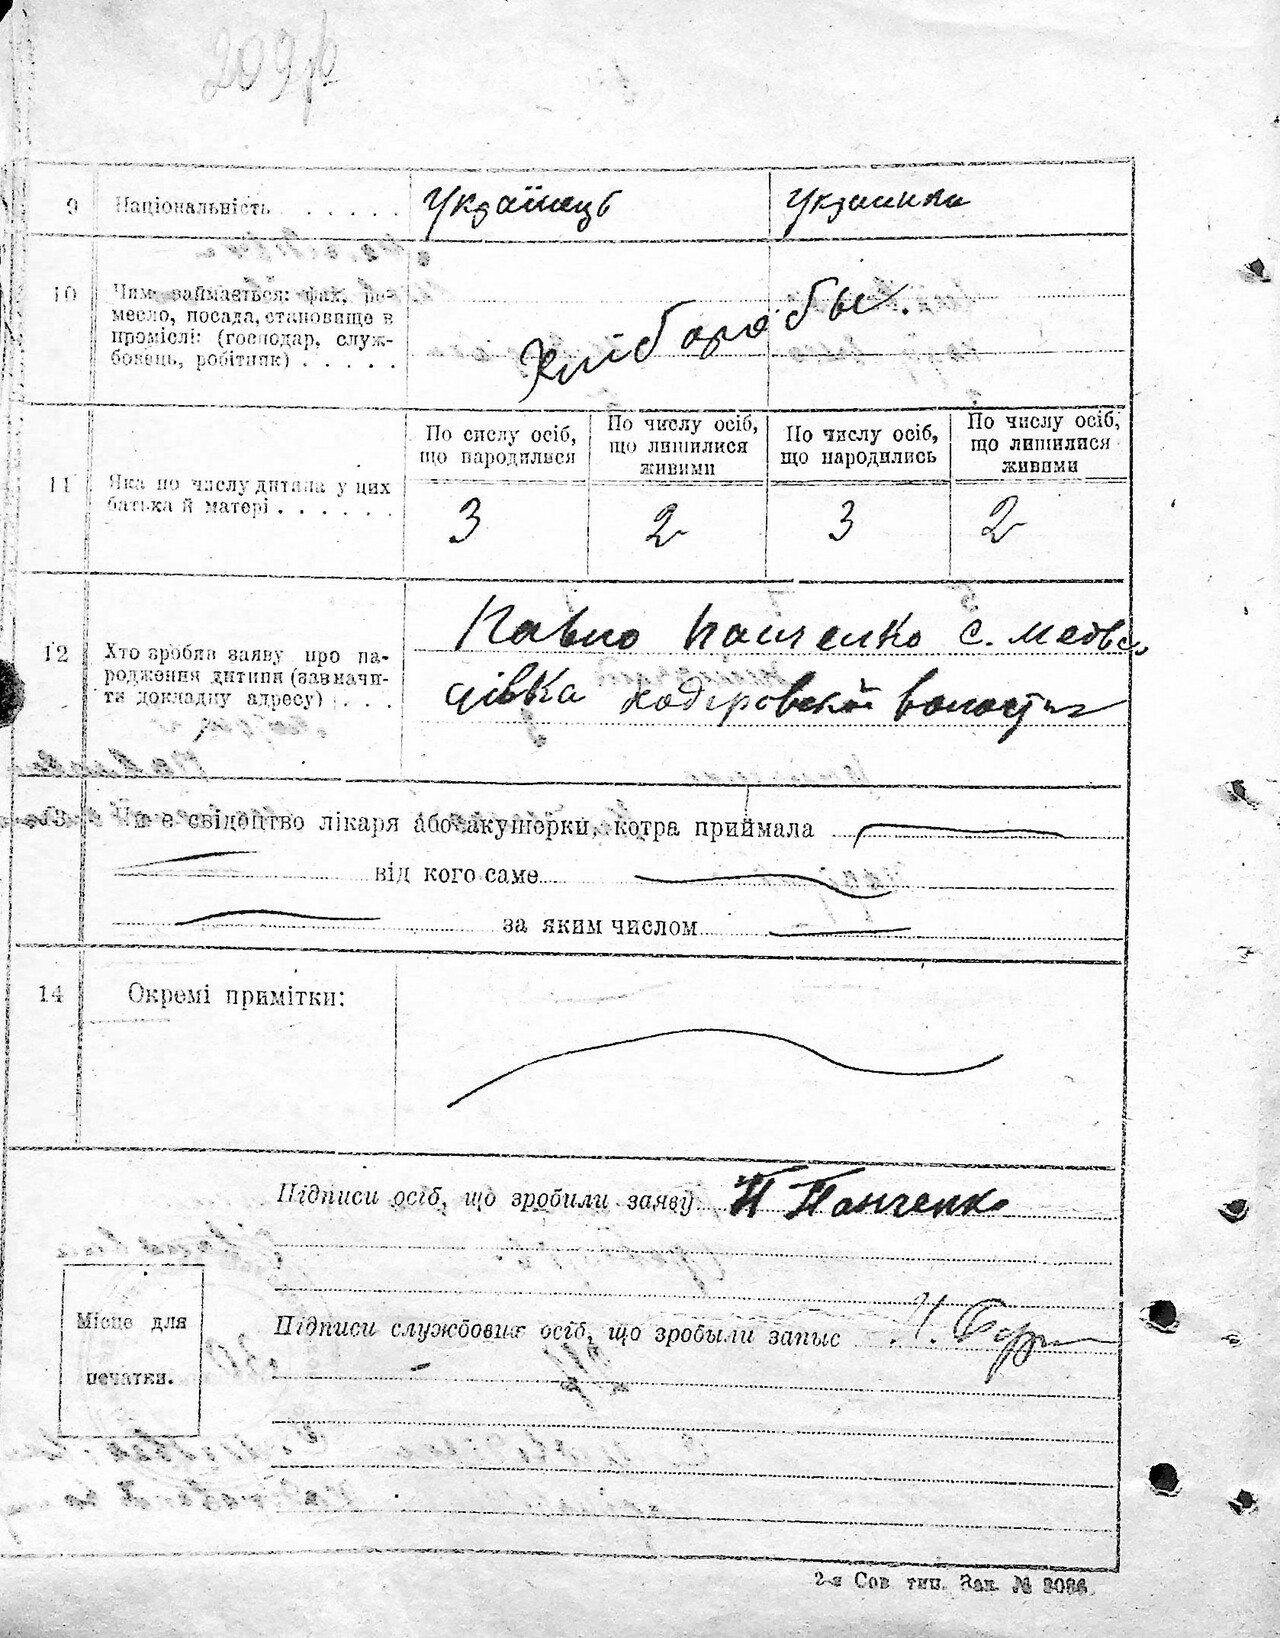 209
9 Національність . . . . . . Українець Украинка
10 Чим займається: фах, ре-
месло, посада, становище в
проміслі: (господар, служ-
бовець, робітник) . . . . .
Хлібороби.
По числу осіб, що народилися
По числу осіб, що лишилися живими
По числу осіб, що народились
По числу осіб, що лишилися живими
11 Яка по числу дитина у цих
батька й матері . . . . . .
3 2 3 2
12 Хто зробив заяву про на-
родження дитини (зазначи-
ти докладну адресу) . . . .
Павло Панченко с. Медве
дівка
13 Чи є свідоцтво лікаря або акушорки, котра приймала
від кого саме
за яким числом
14 Окремі примітки:
Підписи осіб, що зробили заяву П Панченко
Підписи службових осіб, що зробыли запыс
Місце для
печатки.
2-я Сов тип. Зак. № 3086